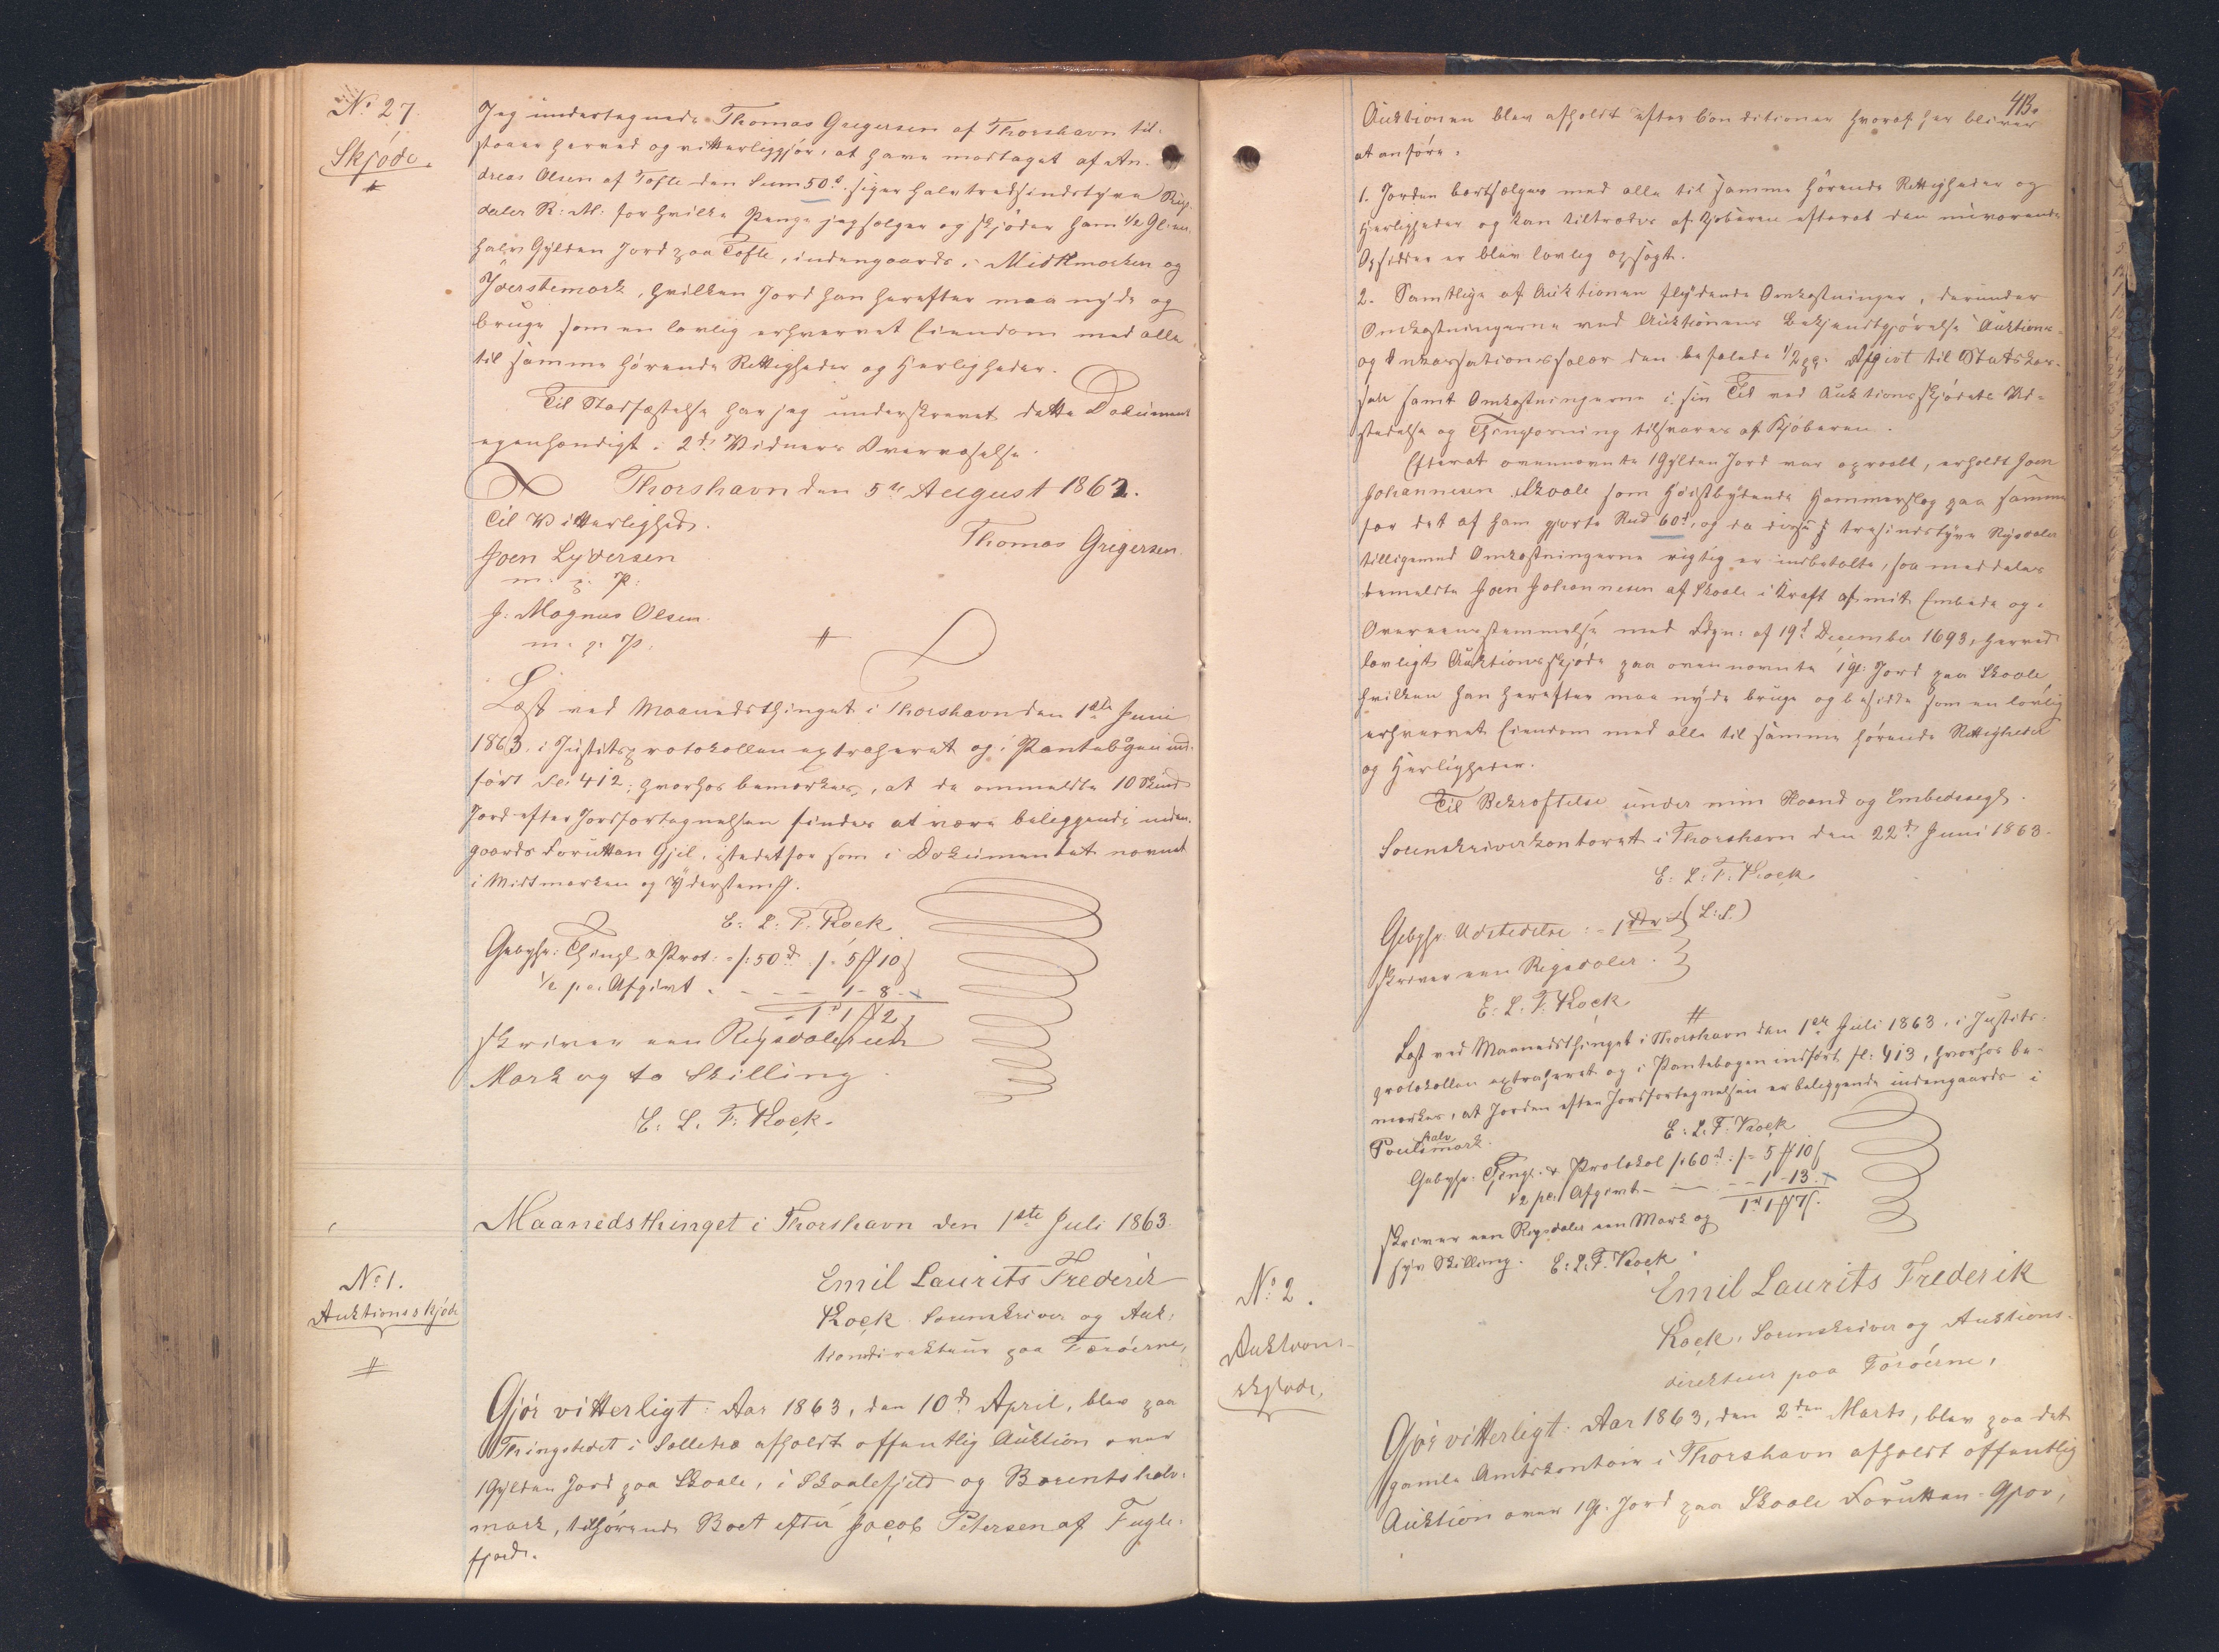 No 27
Skjøde.
Jeg undertegnede Thomas Gregersen af Thorshavn til-
staaer herved og vitterliggjør, at have modtaget af An-
dreas Olsen af Tofte den Sum 50d. siger halvtredsindstyve Rigs-
daler R: M: for hvilke Penge jeg sælger og skjøder ham 1/2 Gl: en
halv Gylden Jord paa Tofte, indengaards i Midtmarken og
Yderstemark, hvilken Jord han herefter maa nyde og
bruge som en lovlig erhvervet Eiendom med alle
til samme hørende Rettigheder og Herligheder.
Til Stadfæstelse har jeg underskrevet dette Dokument
egenhændigt i 2de Vidners Overværelse.
Thorshavn den 5te August 1862.
Til Vitterlighed.
Thomas Gregersen.
Joen Lydersen
m. p.
J. Magnus Olsen.
m. p.
Læst ved Maanedsthinget i Thorshavn den 1ste Juni
1863. i Justitsprotokollen extraheret og i Pantebogen ind-
ført Fol 412; hvorhos bemærkes, at de ommeldte 10 Skind
Jord efter Jordfortegnelsen findes at være beliggende inden-
gaards foruttan Gjil, istedetfor som i Dokumentet nævnt
i Midtmarken og Yderstemk.
E: L: F. Kock
Gebyhr: Thingl & Prot: /: 50d. /. 5 # 10 ß
1/2 pc. Afgivt - - - 1 - 8 -
1d 1 # 2 ß
skriver een Rigsdaler een
Mark og to Skilling.
E. L. F. Kock.
Maanedsthinget i Thorshavn den 1ste Juli 1863.
No 1.
Auktionsskjøde
Emil Laurits Frederik
Kock Sorenskriver og Auk-
tionsdirekteur paa Færøerne,
Gjør vitterligt: Aar 1863, den 10de April, blev paa
Thingstedet i Selletræ afholdt offentlig Auktion over
1 Gylden Jord paa Skaale, i Skaalefjeld og Barentshalv-
mark, tilhørende Boet efter Jacob Petersen af Fugle-
fjord.
413.
Auktionen blev afholdt efter Conditioner hvoraf her bliver
at anføre:
1. Jorden bortsælges med alle til samme hørende Rettigheder og
Herligheder og kan tiltrædes af Kjøberen efterat den nuværende
Opsidder er blev lovlig opsagt.
2. Samtlige af Auktionen flydende Omkostninger, derunder
Omkostningerne ved Auktionens Bekjendtgjørelse Auktions-
og Inkassationssalær den befalede 1/2 pc. Afgivt til Statskas-
sen samt Omkostningerne i sin Tid ved Auktionsskjødets Ud-
stedelse og Thinglæsning tilsvares af Kjøberen.
Efterat ovennævnte 1 Gylden Jord var opraabt, erholdt Joen
Johannesen Skaale som Høistbydende Hammerslag paa samme
for det af ham gjorte Bud 60d, og da disse tresindstyve Rigsdaler
tilligemed Omkostningerne rigtig er indbetalte, saa meddeles
bemeldte Joen Johannesen af Skaale i Kraft af mit Embede og i
Overeensstemmelse med Fdgn: af 19d December 1693, herved
lovligt Auktionsskjøde paa ovennævnte 1 gl: Jord paa Skaale
hvilken han herefter maa nyde bruge og besidde som en lovlig
erhvervet Eiendom med alle til samme hørende Rettigheder
og Herligheder.
Til Bekræftelse under min Haand og Embedssegl.
Sorenskriverkontoret i Thorshavn den 22d Juni 1863.
E: L: F: Kock
Gebyhr: Udstedelse: - 1 (L:S.)
skriver een Rigsdaler.
E. L. F. Kock
Læst ved Maanedsthinget i Thorshavn den 1ste Juli 1863. i Justits-
protokollen extraheret og i Pantebogen indført fl: 413, hvorhos be-
mærkes, at Jorden efter Jordfortegnelsen er beliggende indengaards i
Poulshalvmark.
E: L. F. Kock
Gebyhr: Thingl. & Protokol /: 60d: /= 5 # 10 ß
1/2 pc. Afgivt - - - 1 - 13.
1d 1 # 7 ß.
skriver een Rigsdaler een Mark og
syv Skilling. E: L. F. Kock
No 2.
Auktions-
skjøde.
Emil Laurits Frederik
Kock, Sorenskriver og Auktions-
direkteur paa Færøerne,
Gjør vitterligt: Aar 1863, den 2den Marts, blev paa det
gamle Amtskontoir i Thorshavn afholdt offentlig
Auktion over 1 gl. Jord paa Skaale Foruttan-Gjov,